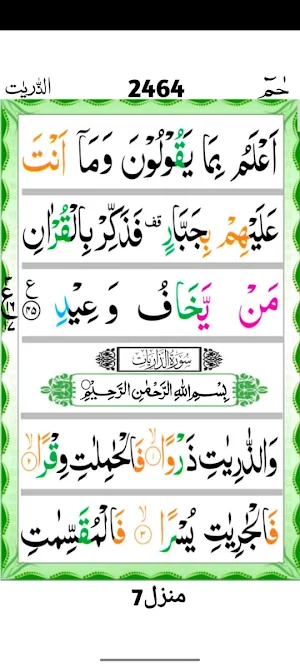 الذّٰریٰت 2464 حٰمٓ
اَعْلَمُ بِمَا یَقُوْلُوْنَ وَمَاۤ اَنْتَ
عَلَیْهِمْ بِجَبَّارٍ قف فَذَكِّرْ بِالْقُرْاٰنِ
مَنْ یَّخَافُ وَعِیْدِ ﴿۴۵﴾ ع
سُوْرَةُ الذَّارِیَات
بِسْمِ اللّٰهِ الرَّحْمٰنِ الرَّحِیْمِ
وَالذّٰرِیٰتِ ذَرْوًا ﴿۱﴾ فَالْحٰمِلٰتِ وِقْرًا ﴿۲﴾
فَالْجٰرِیٰتِ یُسْرًا ﴿۳﴾ فَالْمُقَسِّمٰتِ
منزل 7